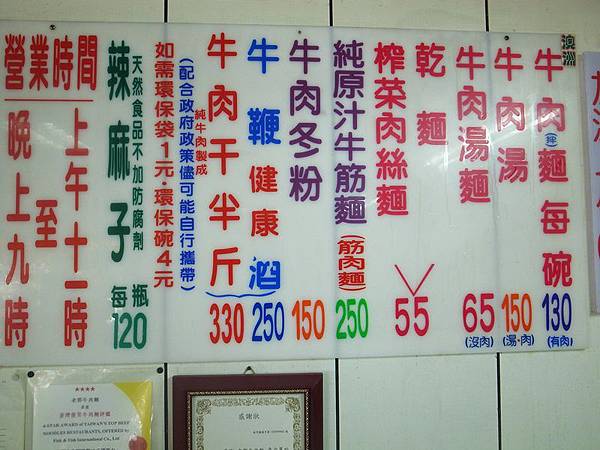 澳洲
牛肉(拌)麵每碗
130
(有肉)
牛肉湯
150
(湯·肉)
牛肉湯麵
65
(沒肉)
乾麵
榨菜肉絲麵
55
純原汁牛筋麵(筋肉麵)
250
牛肉冬粉
150
牛鞭健康酒
250
牛肉干半斤
純牛肉製成
330
(配合政府政策儘可能自行攜帶)
如需環保袋1元·環保碗4元
天然食品不加防腐劑
辣麻子每瓶
120
營業時間
上午十一時
至
晚上九時
老郭牛肉麵
A STAR AWARD of TAIWAN'S TOP BEEF
NOODLES RESTAURANTS, OFFERED by
Fish & Fish International Co., Ltd
感謝狀